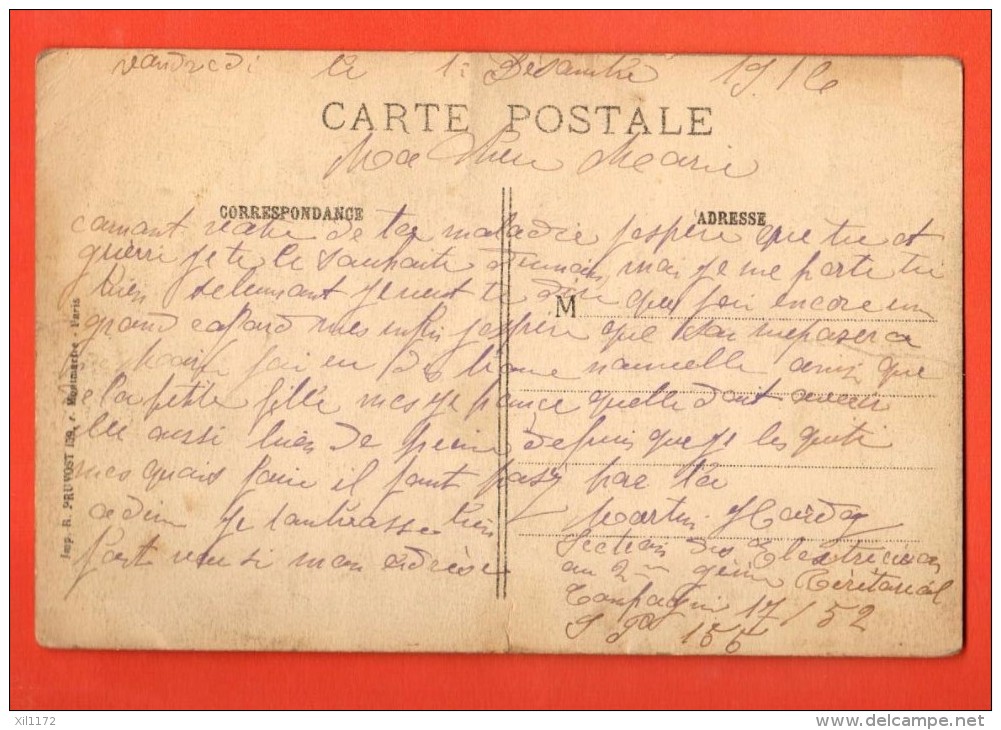 vandredi le 1: Désambre 1916
CARTE POSTALE
Ma Chere Marie
CORRESPONDANCE
ADRESSE
comant vatu de ta maladie jespere que tu et
guerri je te le souhaite moi je me porte tré
bien je veut te dire que jai encore un
M
grand cafard mes enfin jespere que sa me pasera
jai en nouvelle ainsi que
de la petite fille mes je pance quelle doit avoir
elle aussi bien de peine depuis que je les quiti
mes quois faire il faut pasé par la
adieu je tanbrasse bien
fort voisi mon adrèse
Martin
Section des Electriciens
au 2me génie Teritorial
Conpagni 17/52
S P 155
Imp. R. PRUVOST 159, r. Montmartre - Paris
xil1172
www.delcampe.net